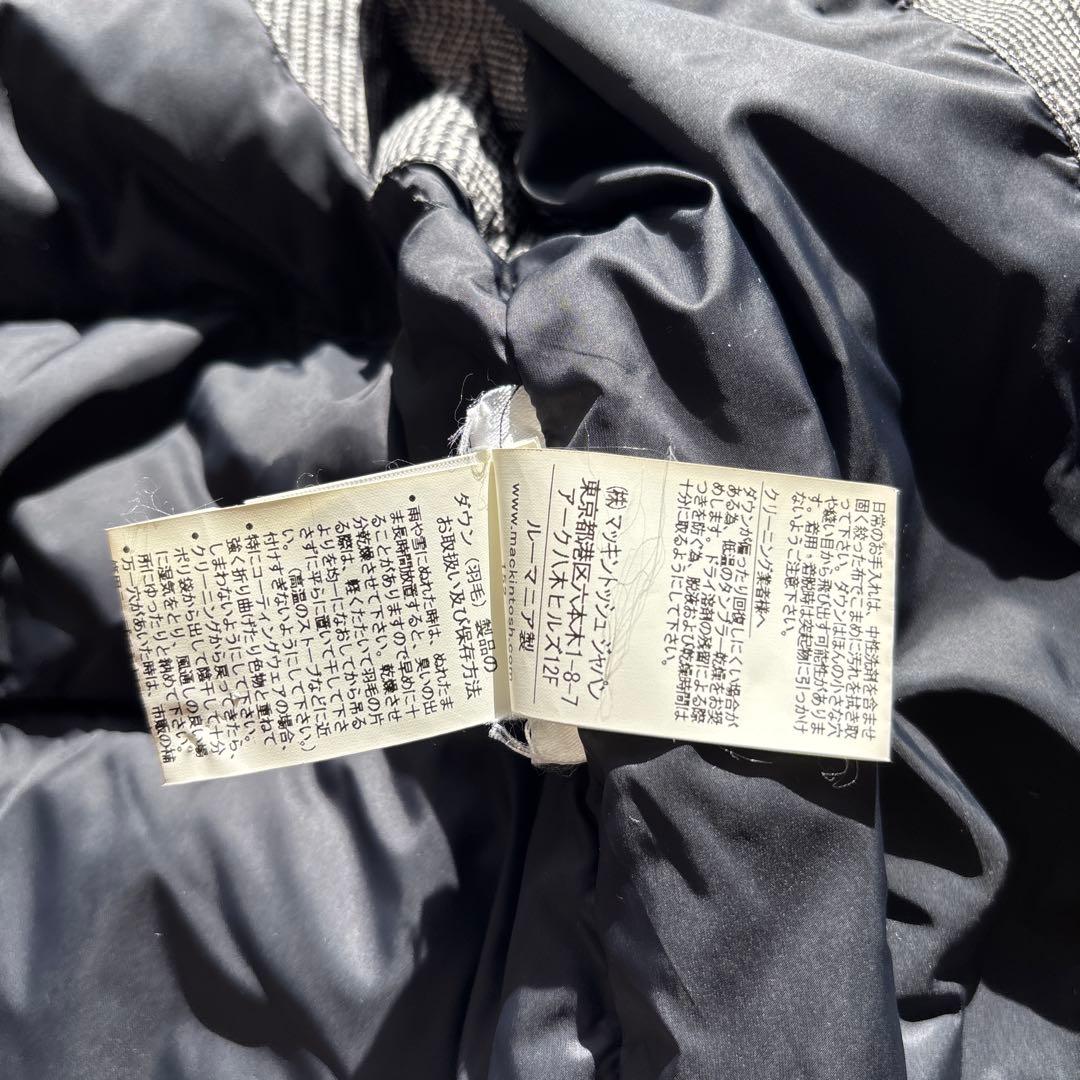 ダウン（羽毛）製品の
お取扱い及び保存方法
・雨や雪にぬれた時は、ぬれたま
ま長時間放置すると、臭いの出
ることがありますので早めに十
分乾燥させて下さい。乾燥させ
る際は、軽くたたいて羽毛の片
よりを均一になおしてから吊る
さずに平らに置いて干して下さ
い。（高温のストーブなどに近
付けすぎないようにして下さい。）
・特にコーティングウェアの場合、
強く折り曲げたり色物と重ねて
しまわないようにして下さい。
・クリーニングから戻ってきたら、
ポリ袋から出して陰干しして十分
に湿気をとり、風通しの良い場
所にゆったりと納めて下さい。
・万一穴があいた時は、市販の補
日常のお手入れは、中性洗剤を含ませ
固く絞った布でこまめに汚れを拭き取
って下さい。ダウンはほんの小さな穴
や縫い目から飛び出す可能性がありま
す。着用・着脱時は突起物に引っかけ
ないようご注意下さい。
クリーニング業者様へ
ダウンが偏ったり回復しにくい場合が
ある為、低温のタンブラー乾燥をお奨
めします。ドライ溶剤の残留による際
つきを防ぐ為、脱液および乾燥時間は
十分に取るようにして下さい。
㈱マッキントッシュジャパン
東京都港区六本木1-8-7
アーク八木ヒルズ12F
ルーマニア製
www.mackintosh.com